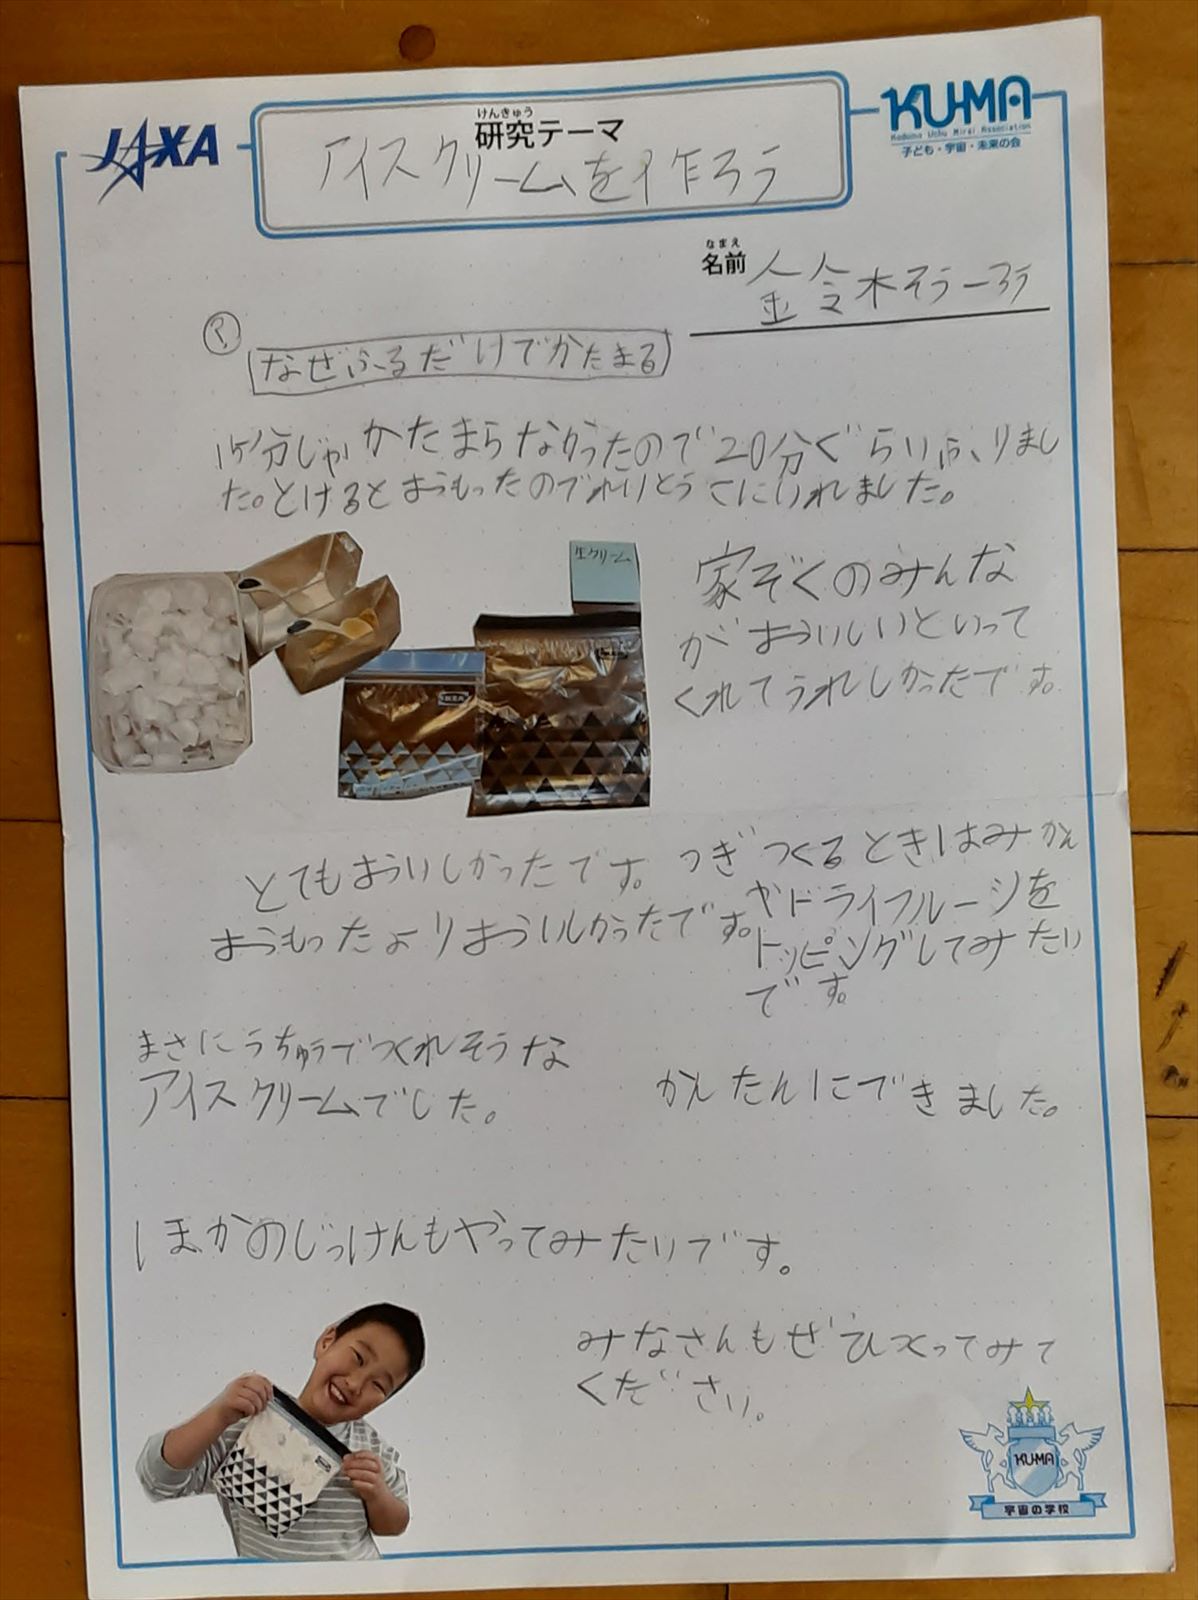 JAXA
けんきゅう
研究テーマ
アイスクリームを作ろう
KU-MA
Kodomo Uchu Mirai Association
子ども・宇宙・未来の会
なまえ
名前 鈴木そういちろう
?
なぜふるだけでかたまる
15分じゃかたまらなかったので20分ぐらいふりまし
た。とけるとおもったのでれいとうこにいれました。
生クリーム
家ぞくのみんな
がおいしいといって
くれてうれしかったです。
とてもおいしかったです。
おもったよりおいしかったです。
つぎつくるときはみかん
やドライフルーツを
トッピングしてみたい
です。
まさにうちゅうでつくれそうな
アイスクリームでした。
かんたんにできました。
ほかのじっけんもやってみたいです。
みなさんもぜひつくってみて
ください。
KU-MA
宇宙の学校